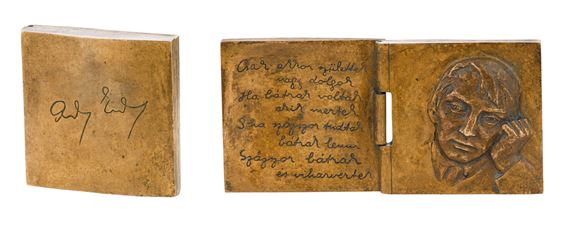 Ady Endre
Csak akkor születtek
nagy dolgok
Ha bátrak voltak
akik mertek
S ha százszor tudtak
bátrak lenni
Százszor bátrak
és viharvertek